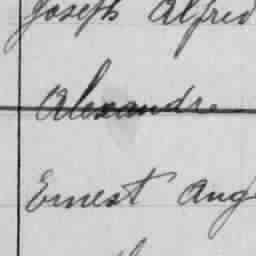 Joseph Alfred
Alexandre
Ernest Aug